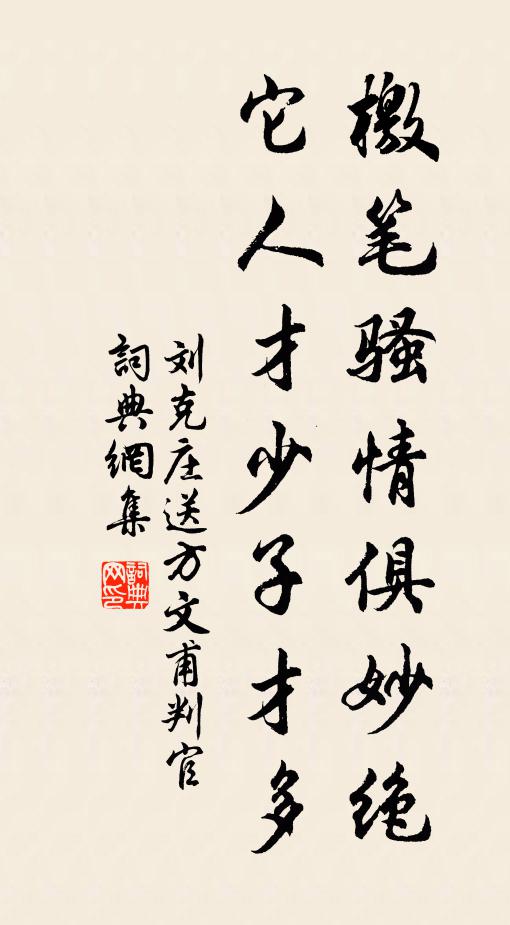 檄笔骚情俱妙绝
它人才少子才多
刘克庄送方文甫判官
詞典網集
詞典网印